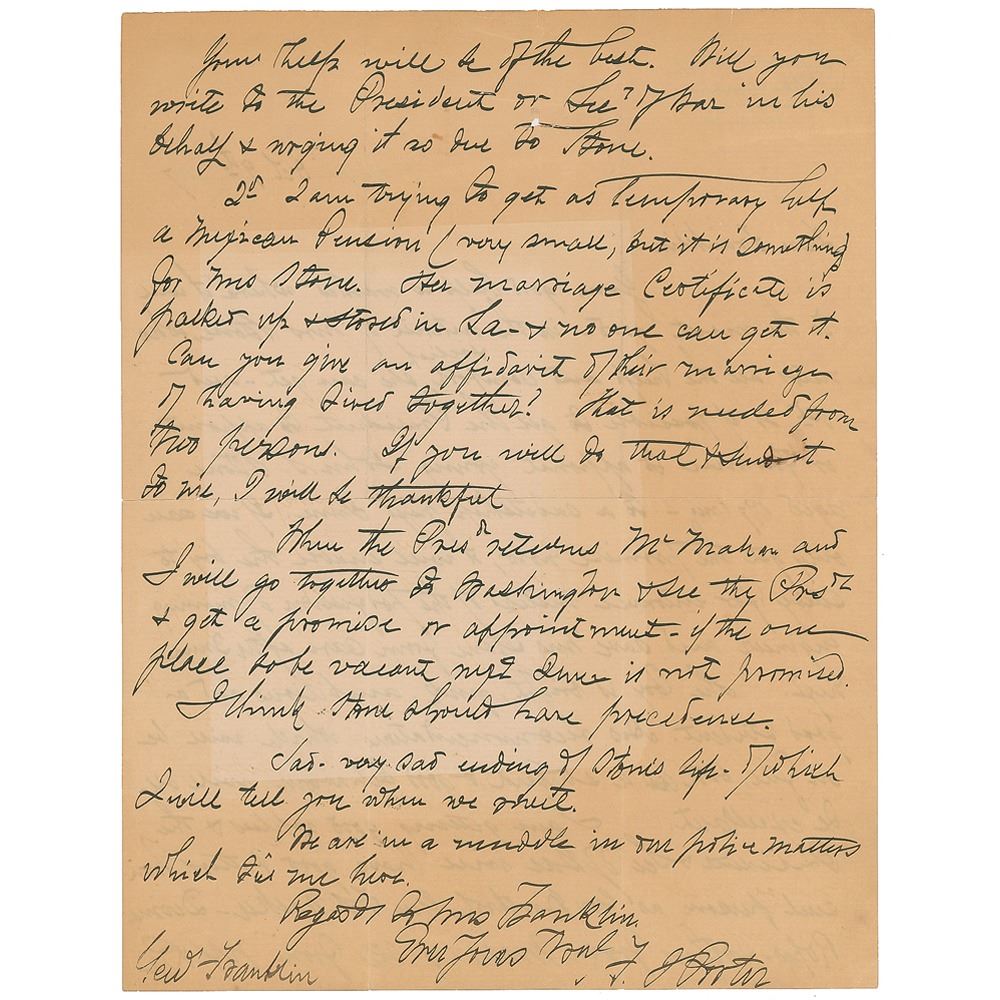 Your help will be of the best. Will you
write to the President or Secy of War in his
behalf & urging it so due to Stone.
2d I am trying to get as temporary help
a Mexican Pension (very small, but it is something
for Mrs Stone. Her marriage Certificate is
packed up & stored in La- & no one can get it.
Can you give an affidavit of their marriage
of having lived together? That is needed from
two persons. If you will do that & send it
to me, I will be thankful
When the Presdt returns McMahon and
I will go together to Washington & see the Presdt
& get a promise or appointment - if the one
place to be vacant next June is not promised.
I think Stone should have precedence.
Sad - very sad ending of Stone's life - of which
I will tell you when we meet.
We are in a muddle in our police matters
which ties me here.
Regards to Mrs Franklin.
Ever Yours Truly
F J Porter
Genl Franklin